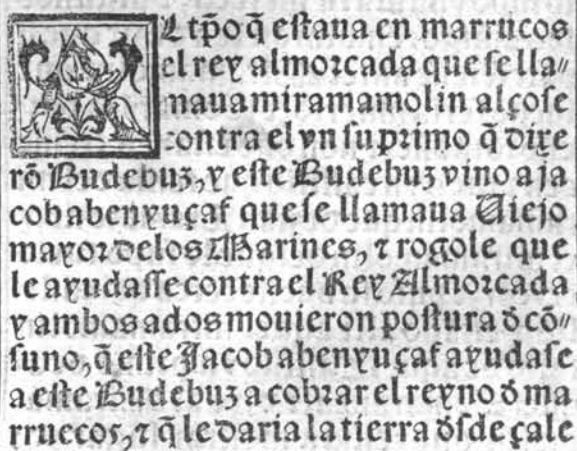 Al tp̄o q̄ estaua en marrucos
el rey almorcada que se lla〃
maua miramamolin alçose
contra el vn su primo q̄ dixe
rō Budebuz, y este Budebuz vino a ja
cob abenyuçaf que se llamaua Uiejo
mayor delos Marines, ⁊ rogole que
le ayudasse contra el Rey Almorcada
y ambos ados mouieron postura đ cō〃
suno, q̄ este Jacob abenyuçaf ayudase
a este Budebuz a cobrar el reyno đ ma
rruecos, ⁊ q̄ le daria la tierra đsde çale